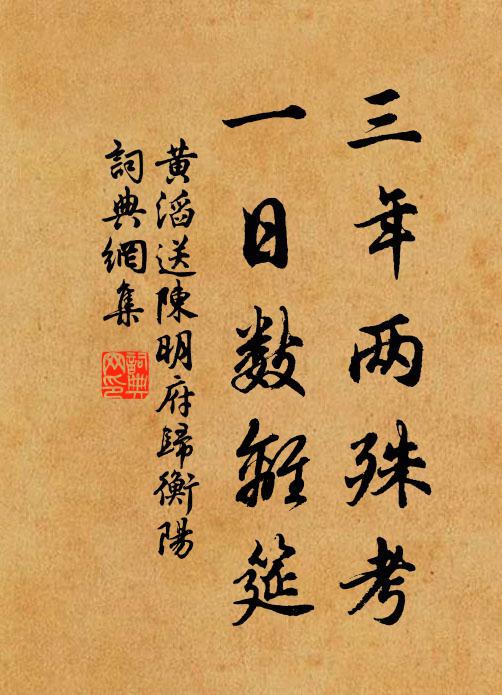 三年两殊考
一日数離筵
黃滔送陳明府歸衡陽
詞典網集
詞典
网印